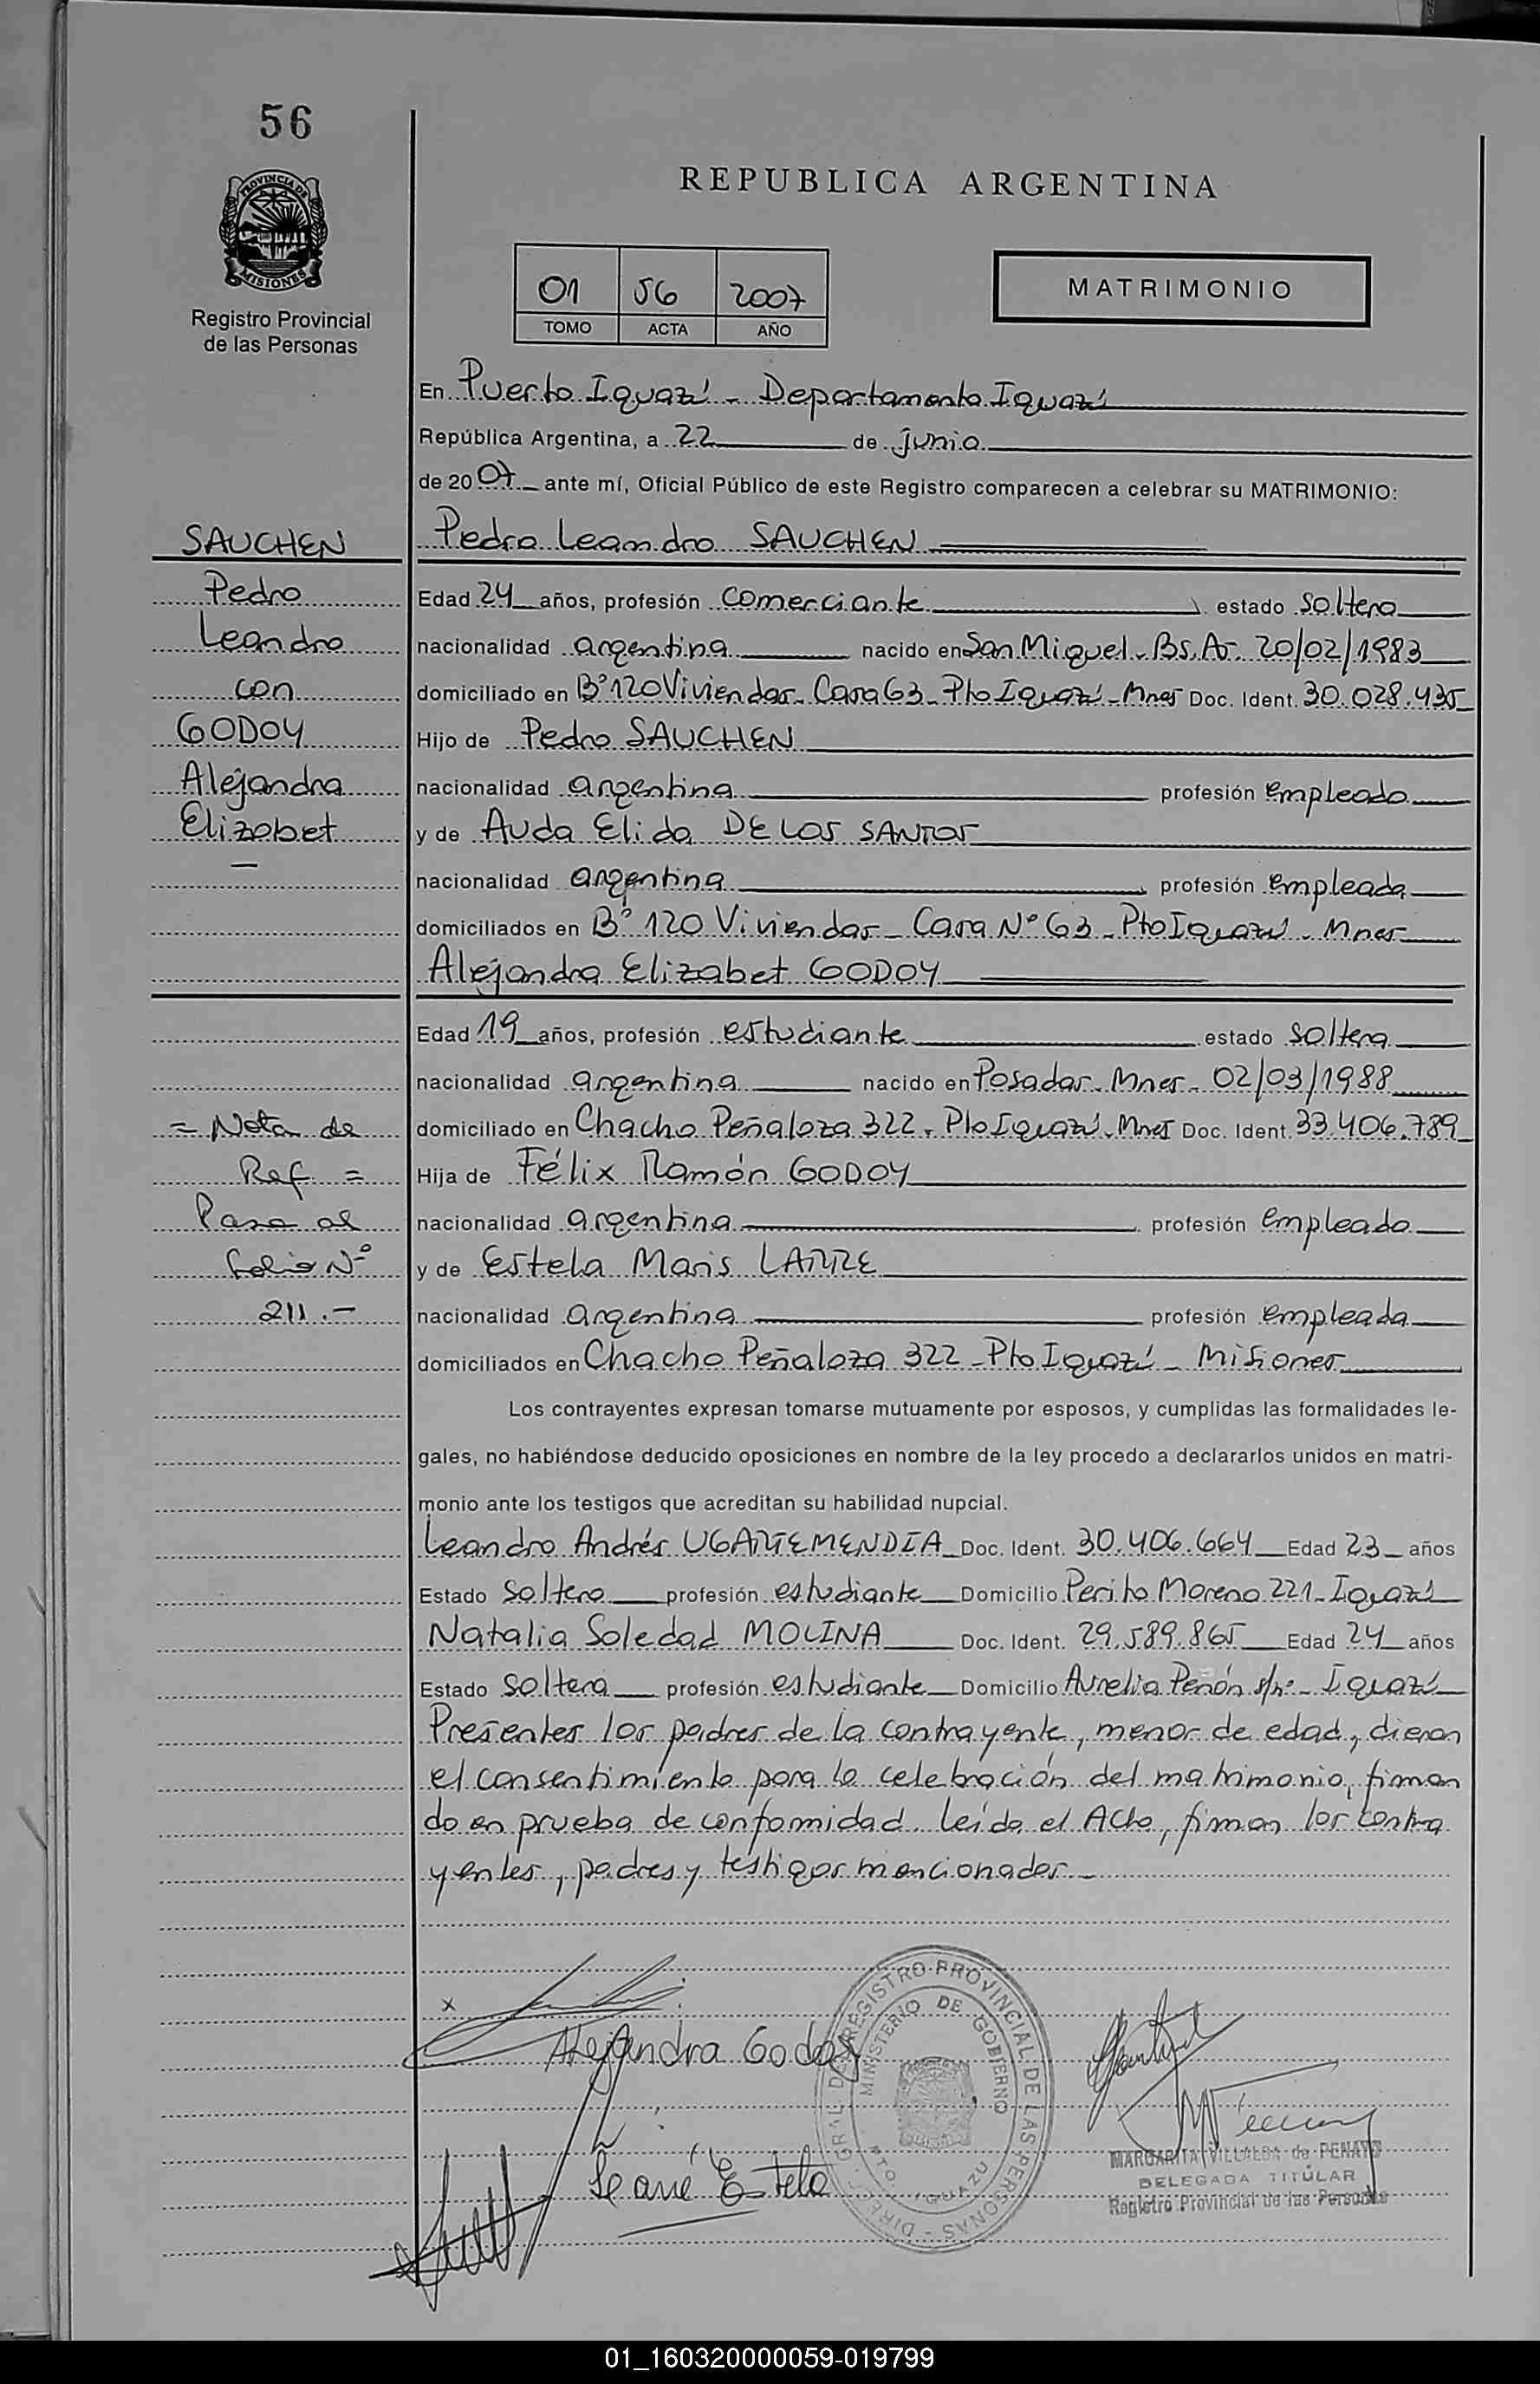 56
PROVINCIA DE
MISIONES
Registro Provincial
de las Personas
REPUBLICA ARGENTINA
01 56 2007
TOMO ACTA AÑO
MATRIMONIO
En Puerto Iguazú - Departamento Iguazú
República Argentina, a 22 de junio
de 2007 ante mí, Oficial Público de este Registro comparecen a celebrar su MATRIMONIO:
SAUCHEN
Pedro
Leandro
con
GODOY
Alejandra
Elizabet
-
Pedro Leandro SAUCHEN
Edad 24 años, profesión comerciante estado soltero
nacionalidad argentina nacido en San Miguel - Bs. As. 20/02/1983
domiciliado en Bº 120 Viviendas - Casa 63 - Pto Iguazú - Mnes Doc. Ident. 30.028.435
Hijo de Pedro SAUCHEN
nacionalidad argentina profesión empleado
y de Auda Elida DE LOS SANTOS
nacionalidad argentina profesión empleada
domiciliados en Bº 120 Viviendas - Casa Nº 63 - Pto Iguazú - Mnes
Alejandra Elizabet GODOY
Edad 19 años, profesión estudiante estado soltera
nacionalidad argentina nacido en Posadas - Mnes - 02/03/1988
domiciliado en Chacho Peñaloza 322 - Pto Iguazú - Mnes Doc. Ident. 33.406.789
Hija de Félix Ramón GODOY
nacionalidad argentina profesión empleado
y de Estela Maris LARRE
nacionalidad argentina profesión empleada
domiciliados en Chacho Peñaloza 322 - Pto Iguazú - Misiones
= Nota de
Ref =
Pasa al
folio Nº
211.-
Los contrayentes expresan tomarse mutuamente por esposos, y cumplidas las formalidades le-
gales, no habiéndose deducido oposiciones en nombre de la ley procedo a declararlos unidos en matri-
monio ante los testigos que acreditan su habilidad nupcial.
Leandro Andrés UGARTEMENDIA Doc. Ident. 30.406.664 Edad 23 años
Estado soltero profesión estudiante Domicilio Perito Moreno 221 - Iguazú
Natalia Soledad MOLINA Doc. Ident. 29.589.865 Edad 24 años
Estado soltera profesión estudiante Domicilio Aurelia Perón s/nº - Iguazú
Presentes los padres de la contrayente, menor de edad, dieron
el consentimiento para la celebración del matrimonio, firman
do en prueba de conformidad. Leída el Acta, firman los contra
yentes, padres y testigos mencionados.-
x
Alejandra Godoy
Estela
DIREC. GRAL. DE REGISTRO PROVINCIAL DE LAS PERSONAS
MINISTERIO DE GOBIERNO
PTO IGUAZU
MARGARITA VILLALBA de PENAYO
DELEGADA TITULAR
Registro Provincial de las Personas
01_160320000059-019799